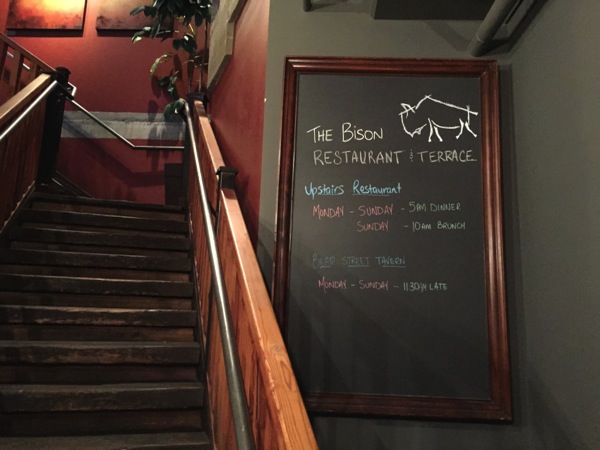 THE BISON
RESTAURANT & TERRACE
Upstairs Restaurant
MONDAY - SUNDAY - 5AM DINNER
SUNDAY - 10AM BRUNCH
BEAR STREET TAVERN
MONDAY - SUNDAY - 1130 LATE